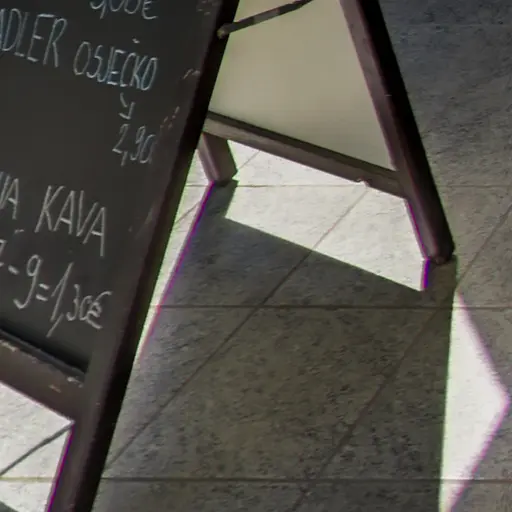 ,00€
ADLER OSJEČKO
2,90
KAVA
7-9=1,30€